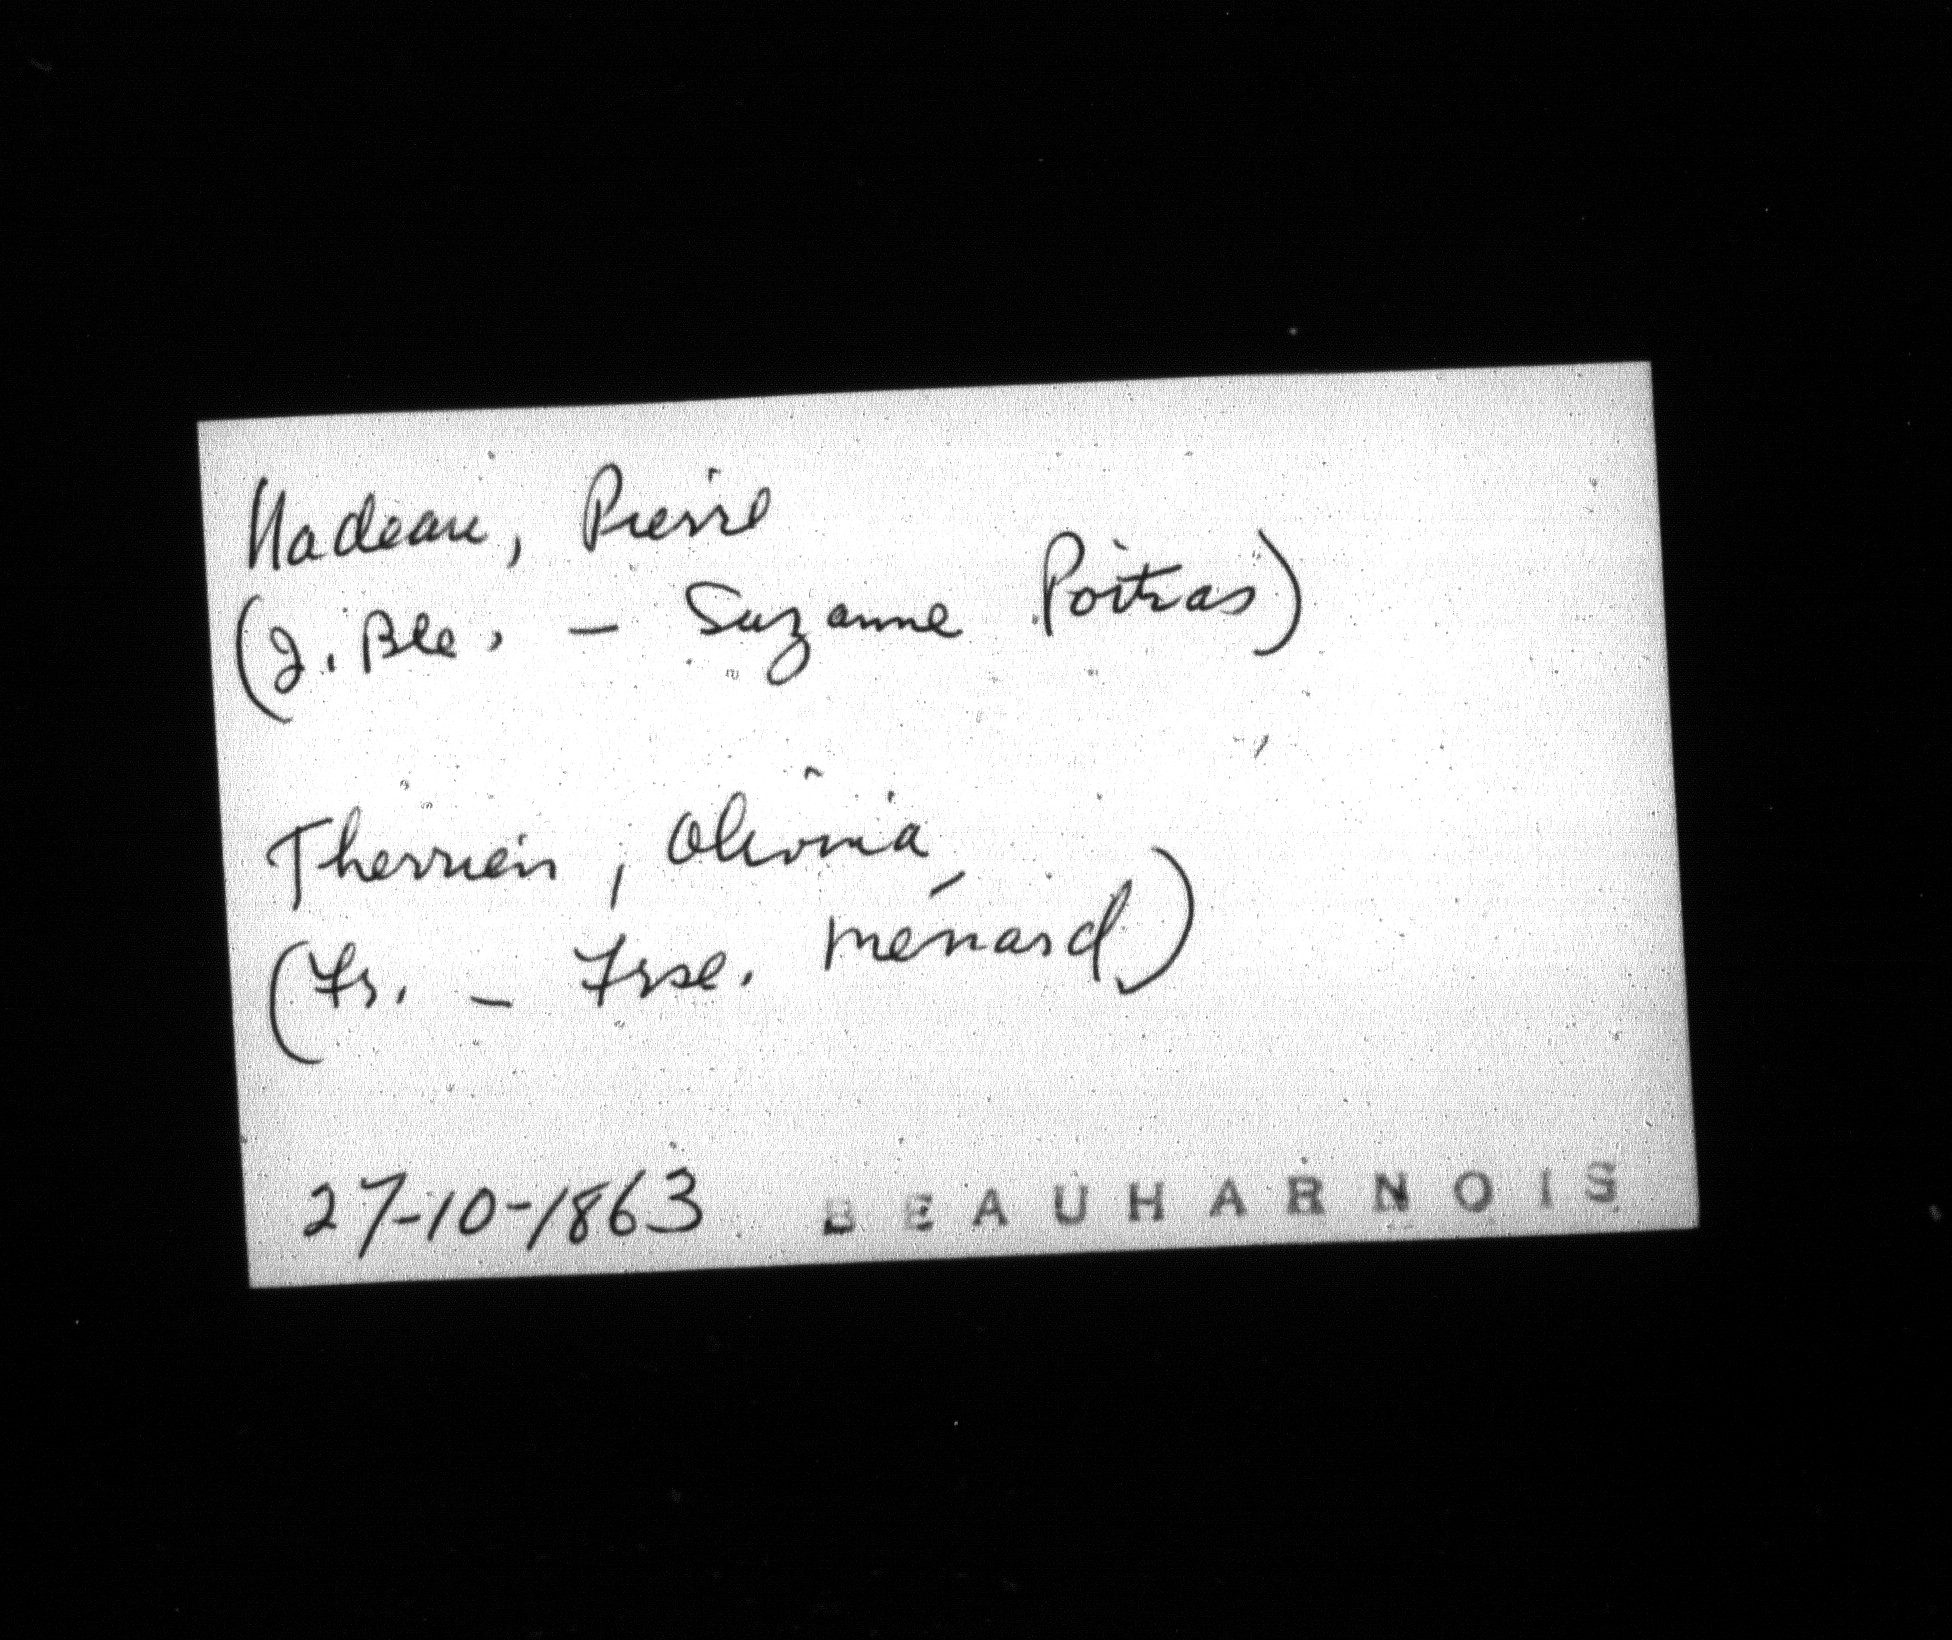 Nadeau, Pierre
(J. Bte. - Suzanne Poitras)
Therrien, Olivina
(Fr. - Frse. Ménard)
27-10-1863 BEAUHARNOIS